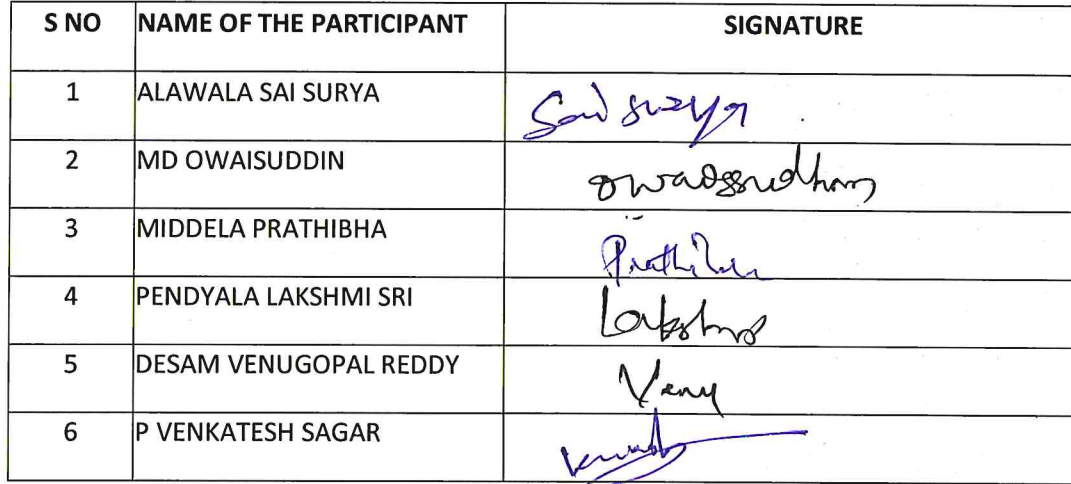 S NO NAME OF THE PARTICIPANT SIGNATURE
1 ALAWALA SAI SURYA Sai surya
2 MD OWAISUDDIN
3 MIDDELA PRATHIBHA Prathibha
4 PENDYALA LAKSHMI SRI Lakshmi
5 DESAM VENUGOPAL REDDY Venu
6 P VENKATESH SAGAR